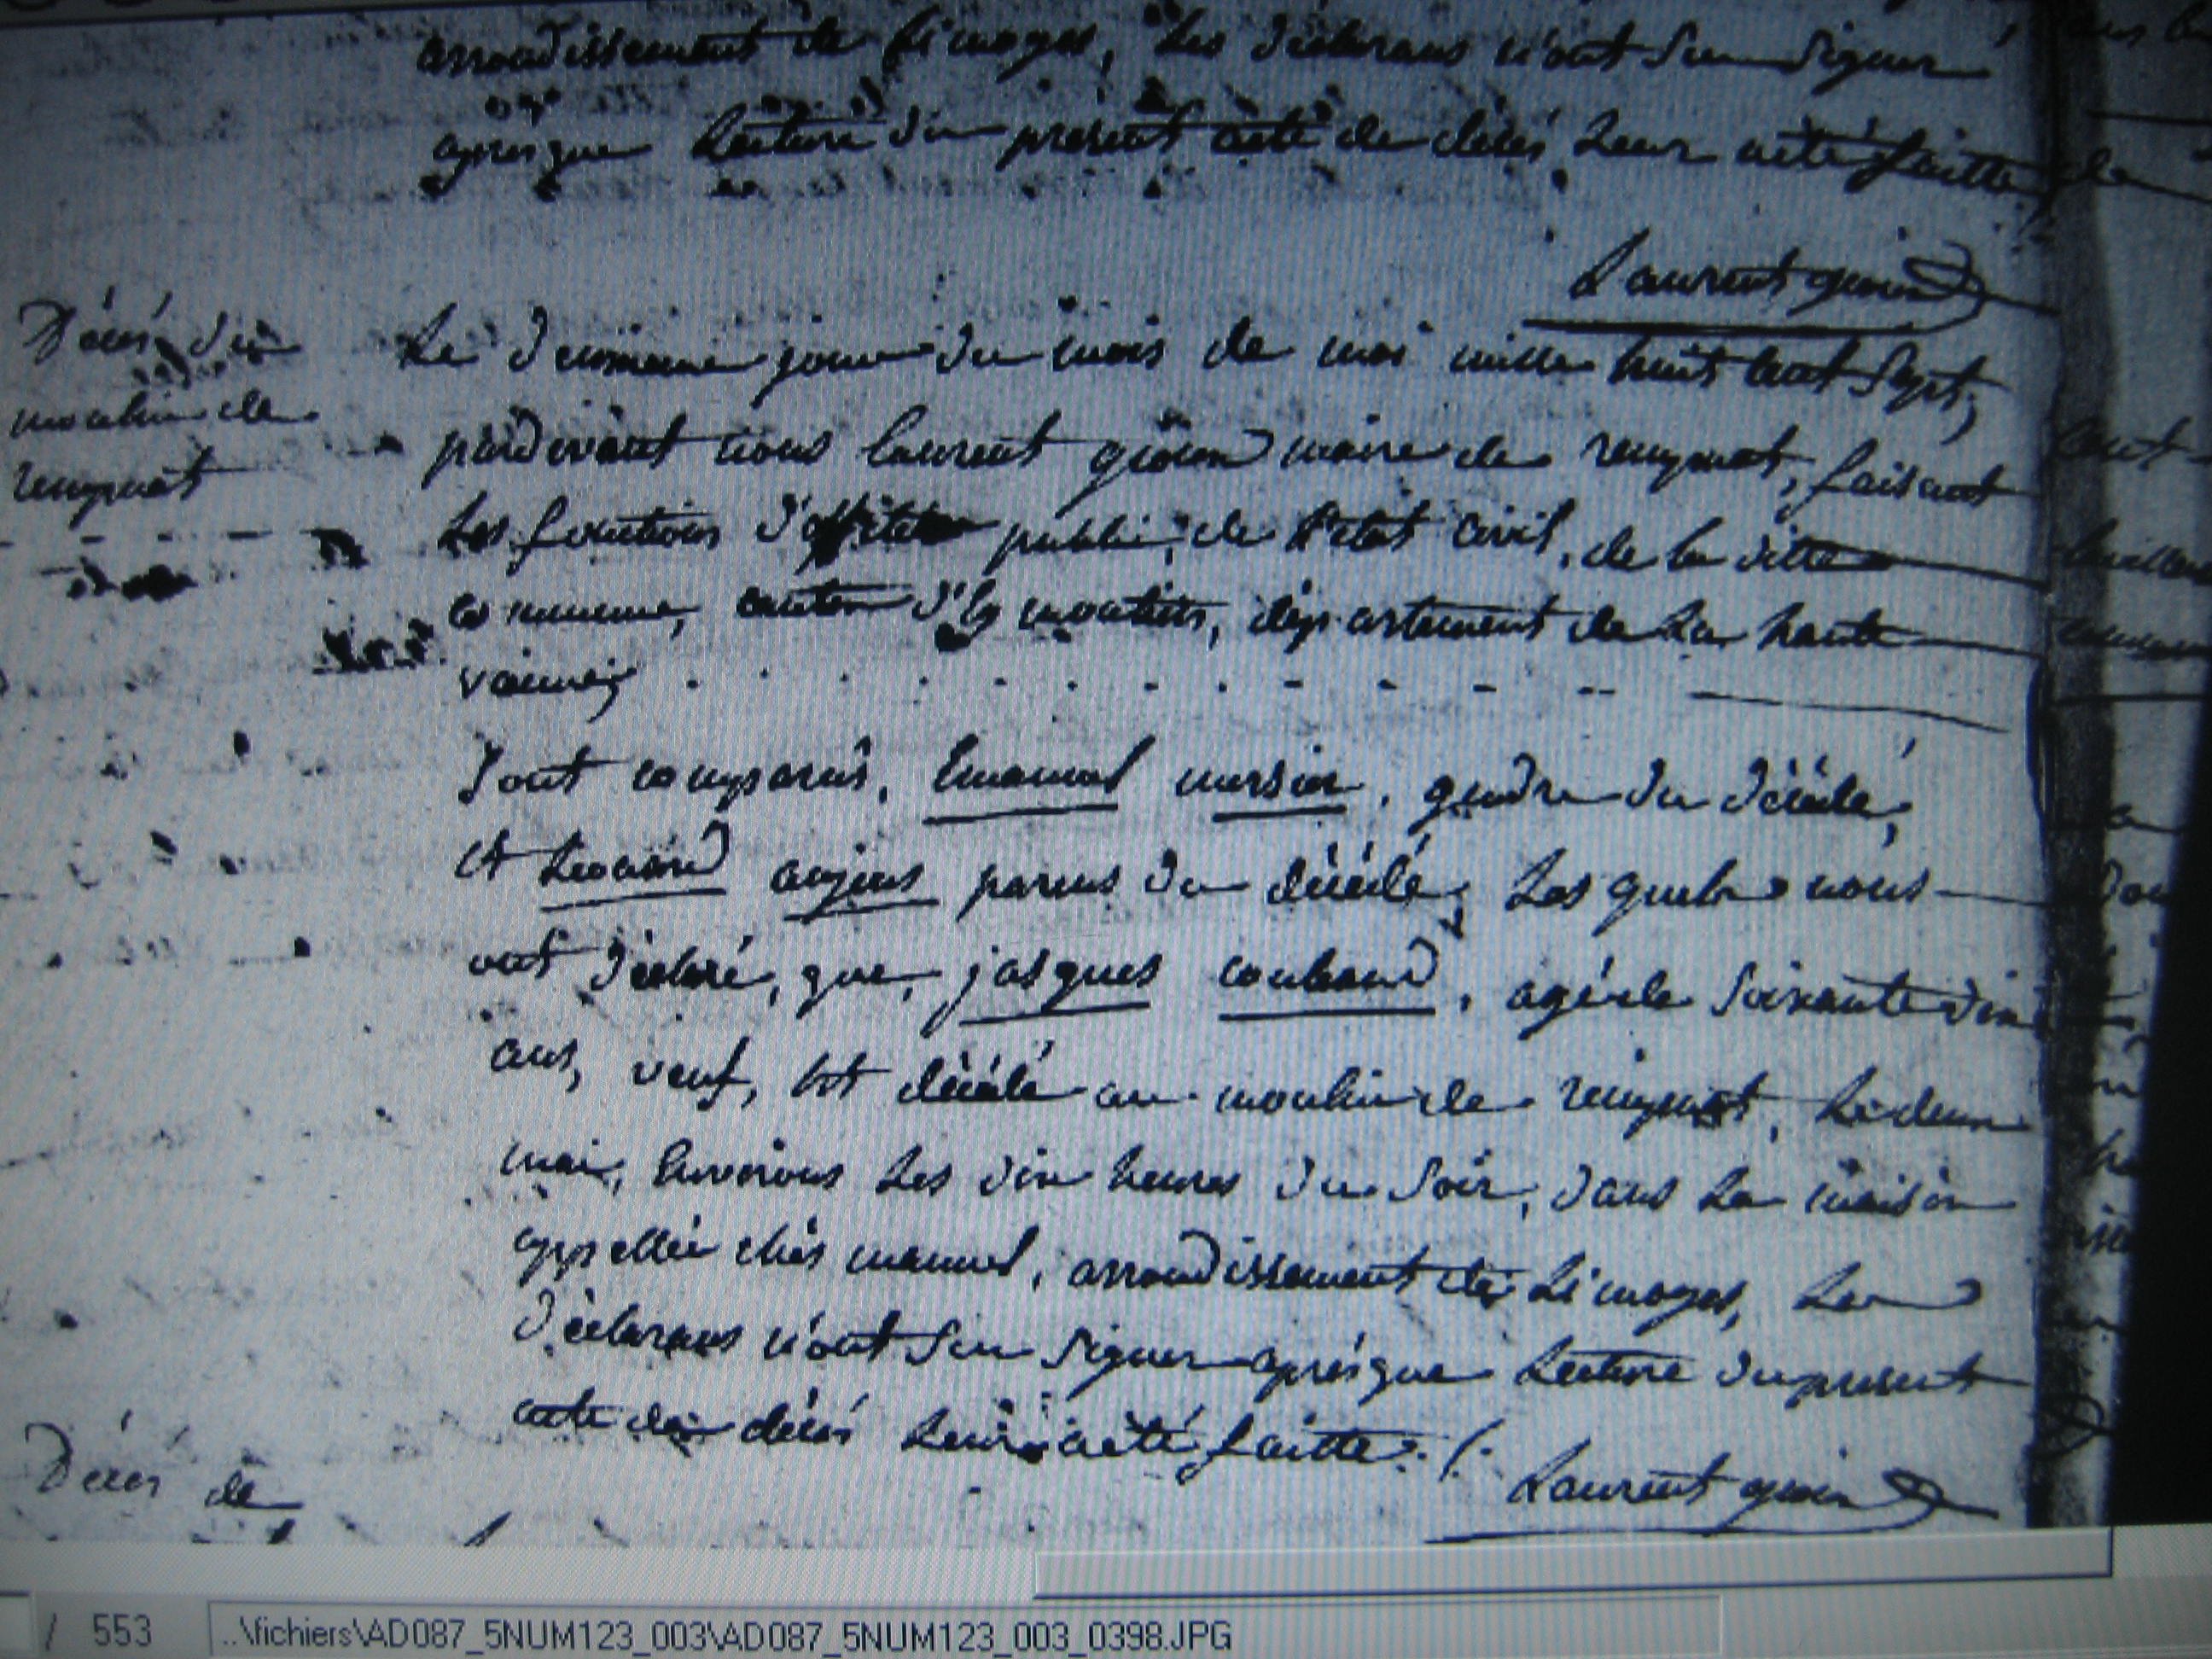 arrondissement de limoges, Les déclarans n'ont Su Signer
aprésque Lecture du présent acte de décés Leur aété faitte
Laurent
Décés du
moulin de
rempnat
Le deuxieme jour du mois de mai mille huit cent Sept,
pardevant nous laurent maire de rempnat, faisant
Les fonctions d'officier public, de l'etat civil, de la ditte
commune, canton d'eymoutiers, département de La haute
vienne,
Sont comparus, Emanuel mersier, gendre du décédé,
et Leonard parens du décédé, Les quels nous
ont déclaré, que, jasques coubaud, agé de Soixante dix
ans, veuf, est décédé au moulin de rempnat, Le deux
mai, Environs Les dix heures du Soir, dans La maison
appellée chés manuel, arrondissement de Limoges, Les
déclarans n'ont Su Signer aprésque Lecture du present
acte de décés Leur aété faitte ./.
Laurent
Décés de
/ 553
..\fichiers\AD087_5NUM123_003\AD087_5NUM123_003_0398.JPG